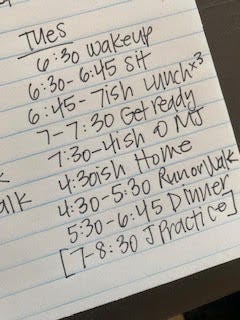 Tues
6:30 wakeup
6:30-6:45 sit
6:45-7ish lunch x3
7-7:30 Get ready
7:30-4ish @ MJ
4:30ish Home
4:30-5:30 Run or Walk
5:30-6:45 Dinner
[7-8:30 J Practice]